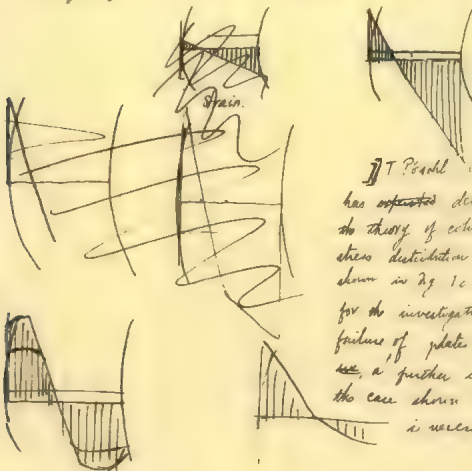 Strain.
T Pöschl
has de
the theory of
stress distribution
shown in fig 1c
for the investigat
failure of plates
a further
the case shown
is necess